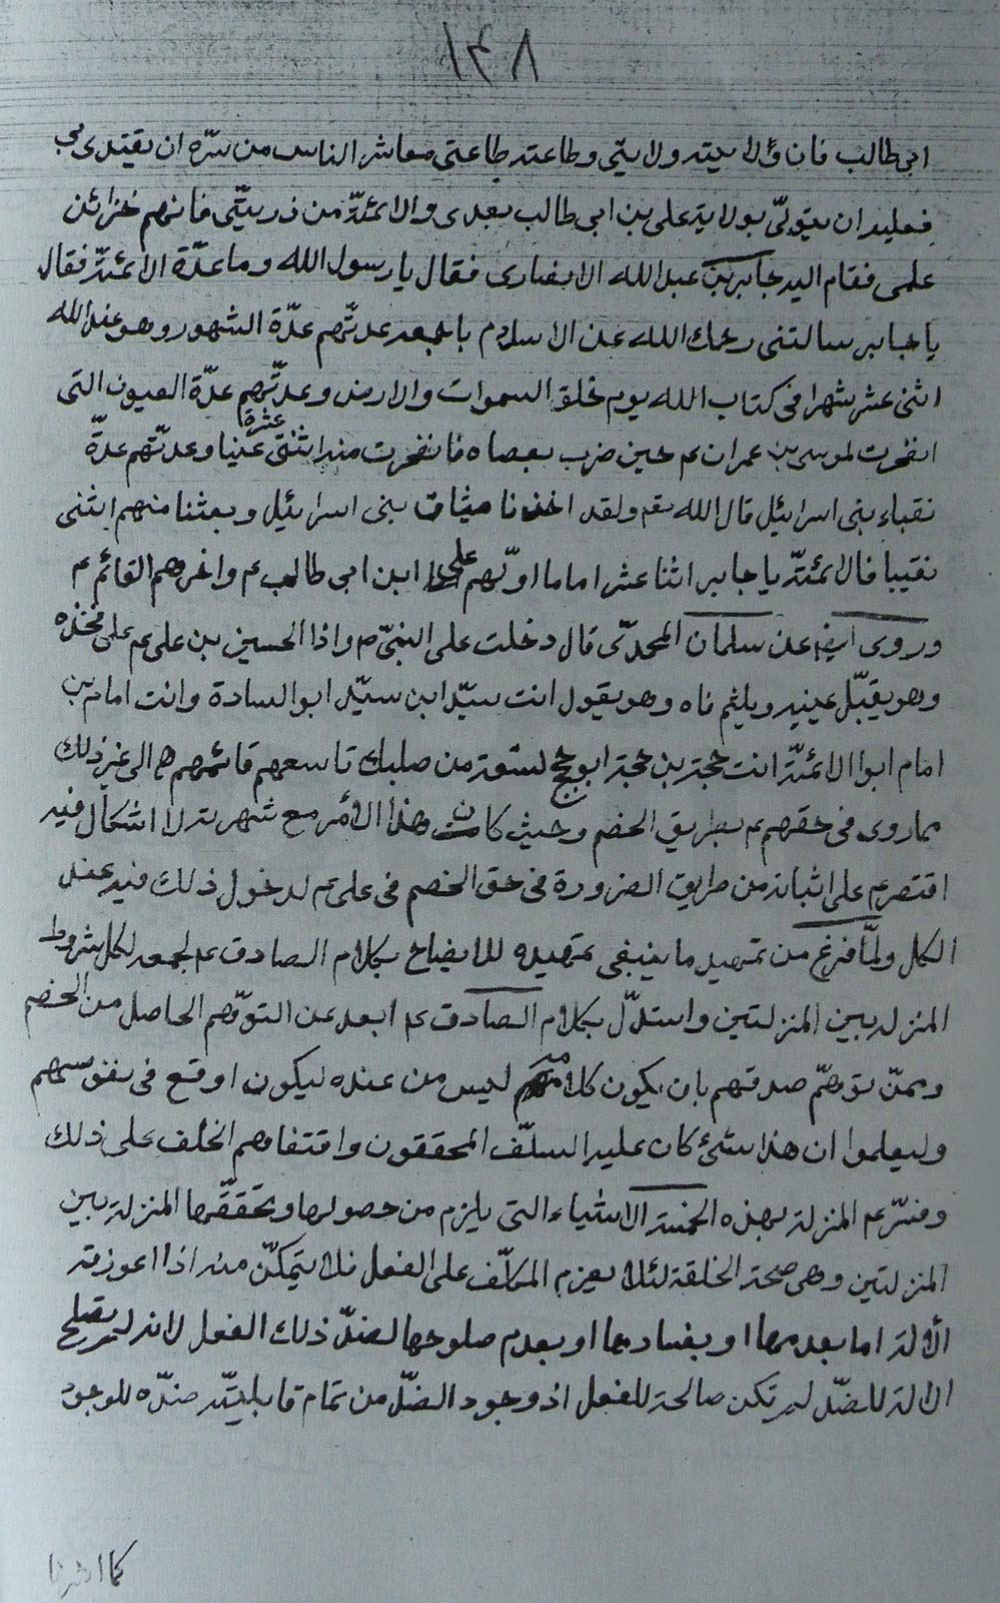 ابى طالب فان ولايته ولايتى وطاعته طاعتى معاشر الناس من سرّه ان يقتدى بى
فعليه ان يتولّى بولاية على بن ابى طالب بعدى والائمّة من ذريتّى فانهم خزائن
علمى فقام اليه جابر بن عبد الله الانصارى فقال يا رسول الله وما عدّة الائمّة فقال
يا جابر سالتنى رحمك الله عن الاسلام باجمعه عدّتهم عدّة الشهور وهو عند الله
اثنى عشر شهرا فى كتاب الله يوم خلق السموات والارض وعدّتهم عدّة العيون التى
انفجرت لموسى بن عمران ع‍ حين ضرب بعصاه فانفجرت منه اثنتى عشرة عينا وعدّتهم عدّة
نقباء بنى اسرائيل قال الله تع‍ ولقد اخذنا ميثاق بنى اسرائيل وبعثنا منهم اثنى
نقيبا فالائمّة يا جابر اثنا عشر اماما اوّلهم على ابن ابى طالب ع‍ واخرهم القائم ع‍
وروى ايض‍ عن سلمان المحمدّى قال دخلت على النبىّ ص واذا الحسين بن على ع‍ على فخذه
وهو يقبّل عينيه ويلثم فاه وهو يقول انت سيّد ابن سيّد ابو السادة وانت امام بن
امام ابوا الائمّة انت حجة بن حجة ابو حجج لتسعة من صلبك تاسعهم قائمهم الى غير ذلك
مما روى فى حقهم ع‍ بطريق الخصم وحيث كان هذا الأمر مع شهرته لا اشكال فيه
اقتصر ع‍ على اثباته من طريق الضرورة فى حق الخصم فى على ع‍ لدخول ذلك فيه عند
الكل ولمّا فرغ من تمهيد ما ينبغى تمهيده للايضاح بكلام الصادق ع‍ لجمعه لكل شروط
المنزلة بين المنزلتين واستدلّ بكلام الصادق ع‍ ابعد عن التوّهم الحاصل من الخصم
وممّن توهمّ صدقهم بان يكون كلامهم ليس من عنده ليكون اوقع فى نفوسهم
وليعلموا ان هذا شئ كان عليه السلّف المحققون واقتفاهم الخلف على ذلك
وفسّر ع‍ المنزلة بهذه الخمسة الاشياء التى يلزم من حصولها وتحققّها المنزلة بين
المنزلتين وهى صحة الخلقة لئلا يعزم المكلّف على الفعل فلا يتمكّن منه اذا اعوزته
الألة اما بعدمها او بفسادها او بعدم صلوحها لضدّ ذلك الفعل لانه لم يصلح
الالة للضدّ لم تكن صالحة للفعل اذ وجود الضدّ من تمام قابليّة ضدّه للوجود
كما اشرنا